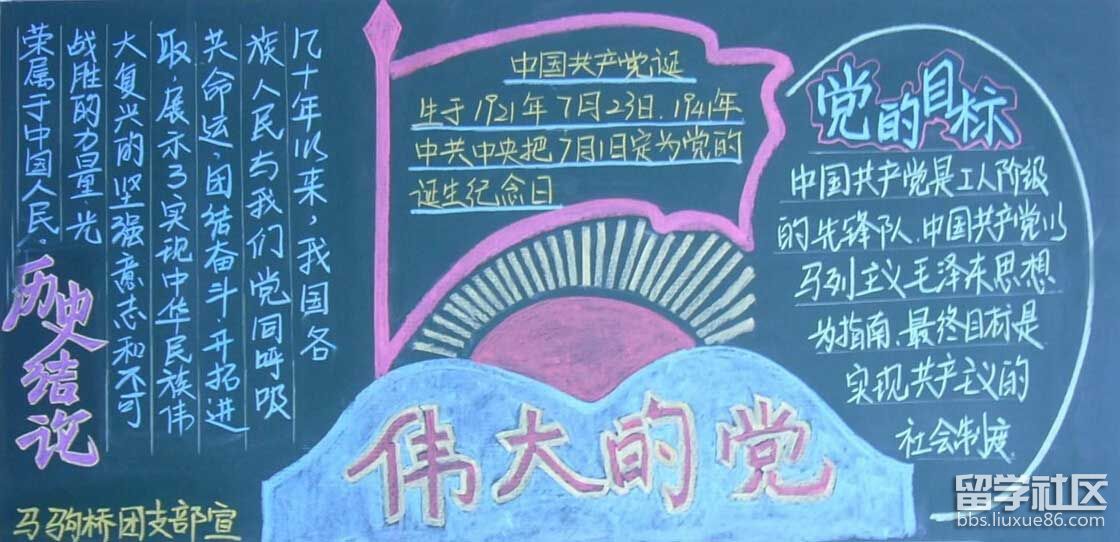 历史结论
几十年以来，我国各
族人民与我们党同呼吸
共命运，团结奋斗，开拓进
取，展示了实现中华民族伟
大复兴的坚强意志和不可
战胜的力量，光
荣属于中国人民。
马驹桥团支部宣
中国共产党诞
生于1921年7月23日，1941年
中共中央把7月1日定为党的
诞生纪念日
伟大的党
党的目标
中国共产党是工人阶级
的先锋队，中国共产党以
马列主义毛泽东思想
为指南，最终目标是
实现共产主义的
社会制度。
留学社区
bbs.liuxue86.com